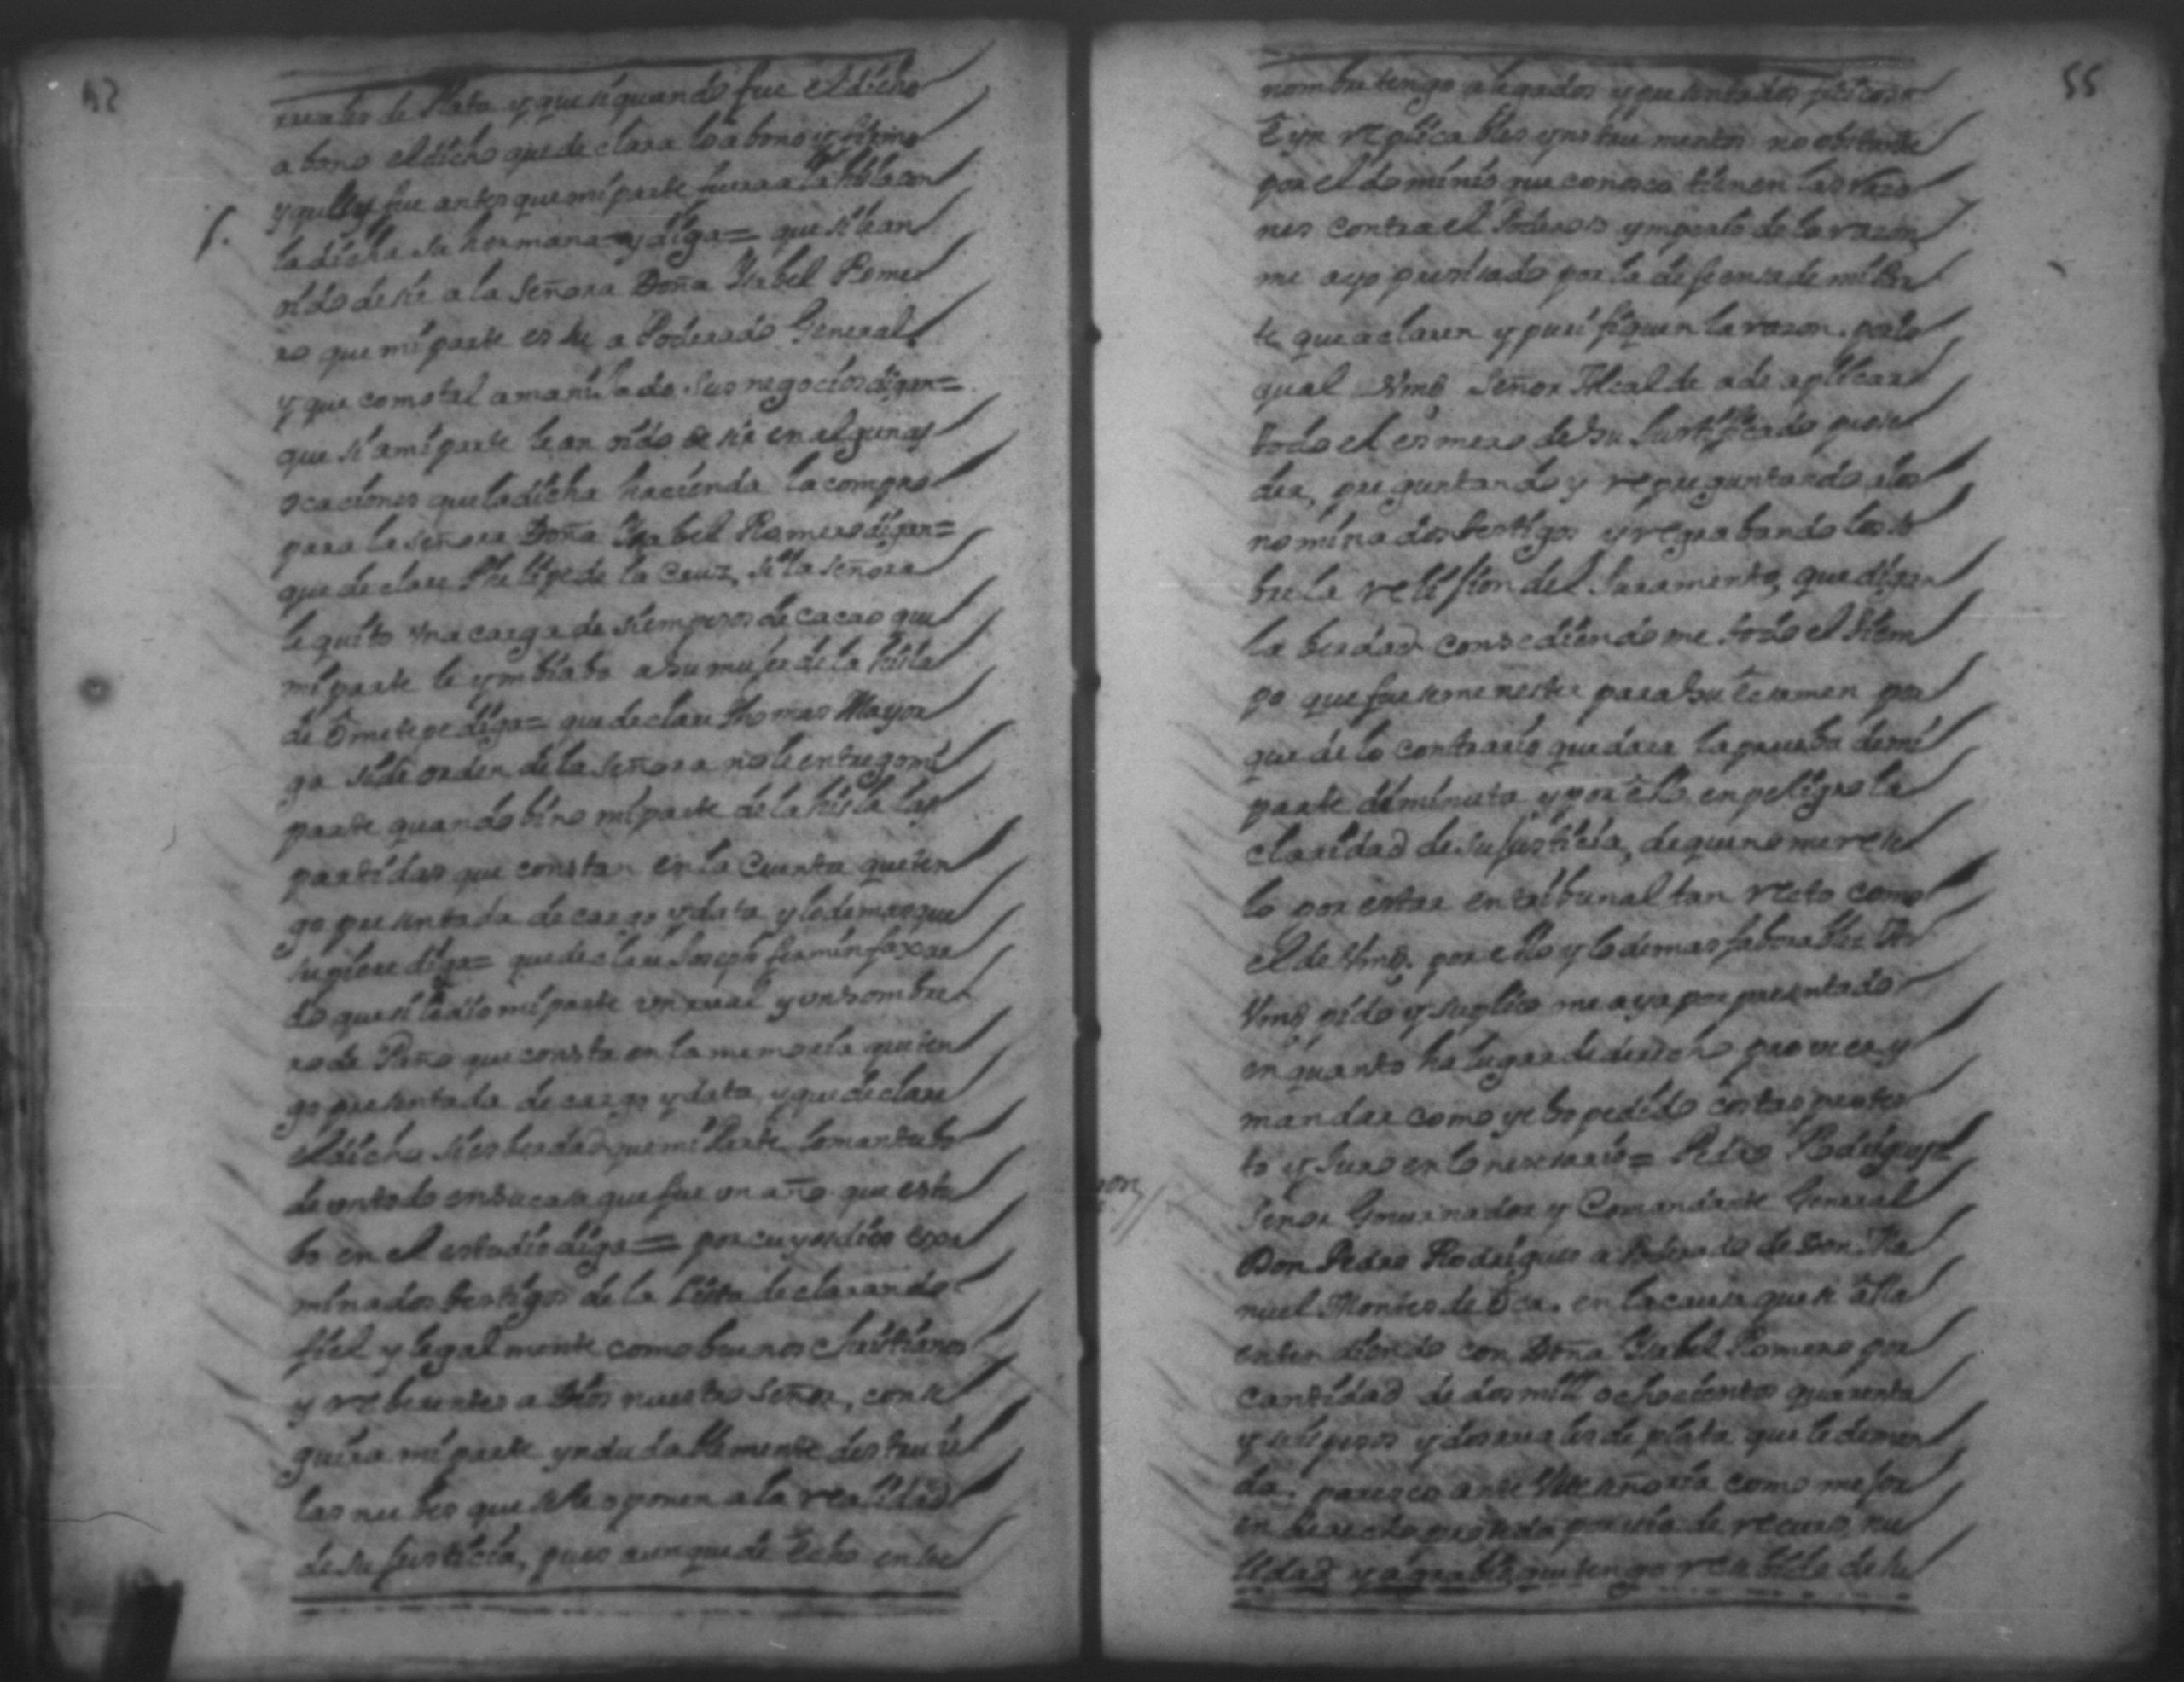 reales de Plata y que si quando fue el dicho
abono el dicho que declara lo abono y firmo
y fue antes que mi parte fuera a la Hisla con
la dicha su hermana y diga= que si lean
oido desir a la Señora Doña Ysabel Rome
ro que mi parte es su a Poderado General
y que como tal amanijado sus negocios digan=
que si a mi parte lean oido desir en algunas
ocaciones que la dicha hacienda la compro
para la señora Doña Ysabel Romero digan=
que declare Phelipe de la Cruz, si la señora
le quito una carga de siempesos de cacao que
mi parte le ymbiaba a su mujer de la hisla
de Ometepe diga= que declare Thomas Mayor
ga si de orden de la señora no le entrego mi
parte quando bino mi parte de la hisla las
partidas que constan en la Cuenta que ten
go presentada de cargo y data y lo demas que
supiere diga= que declare Joseph fermin faxar
do que si le dio mi parte un real y un sombre
ro de Paño que consta en la memoria que ten
go presentada de cargo y data, y que declare
el dicho si es berdad que mi Parte lo mantubo
de un todo en su casa que fue un año que estu
bo en el estudio diga= por cuyos dicos exsa
minados testigos de la Lista declarando
fiel y legalmente como buenos christianos
y reberentes a Dios nuestro Señor, conse
guira mi parte yndudablemente destruir
las nubes que sele oponen a la realidad
de su justicia, pues aunque de Echo en su
55
nombre tengo alegados y presentados
E yn replicables ynstrumentos no obstante
por el dominio que conosco tienen las razo
nes contra el Poderoso ymperio de la razon
me ayo presisado por la defiensa de mi Par
te que aclaren y purifiquen la razon. por lo
qual Vmd Señor Alcalde a de aplicar
todo el esmero de su Justificado prose
der, preguntando y repreguntando a los
nominados testigos y regrabandoles so
bre la relission del Juramento, que digan
la berdad consediendome todo el tiem
po que fuese menester para su Ecsamen por
que de lo contrario quedara la prueba de mi
parte diminuta y por ello en peligro la
claridad de su justicia, de que no merese
lo por estar en tribunal tan recto como
el de Vmd. por ello y lo demas faborable A
Vmd pido y suplico me aya por presentado
en quanto ha lugar de derecho proveer y
mandar como yebo pedido costas protes
to y Juro en lo nesesario= Pedro Rodriguez
Señor Governador y Comandante General
Don Pedro Rodrigues a Poderado de Don Ma
nuel Montes de Oca. en la causa que se alla
entendiendo con Doña Ysabel Romero por
cantidad de dos mill ochocientos quarenta
y seis pesos y dos reales de plata que le deman
da. paresco ante Useñoria como mejor
en derecho proseda por via de recurso, nu
lidad y agrabio que tengo resebido de su